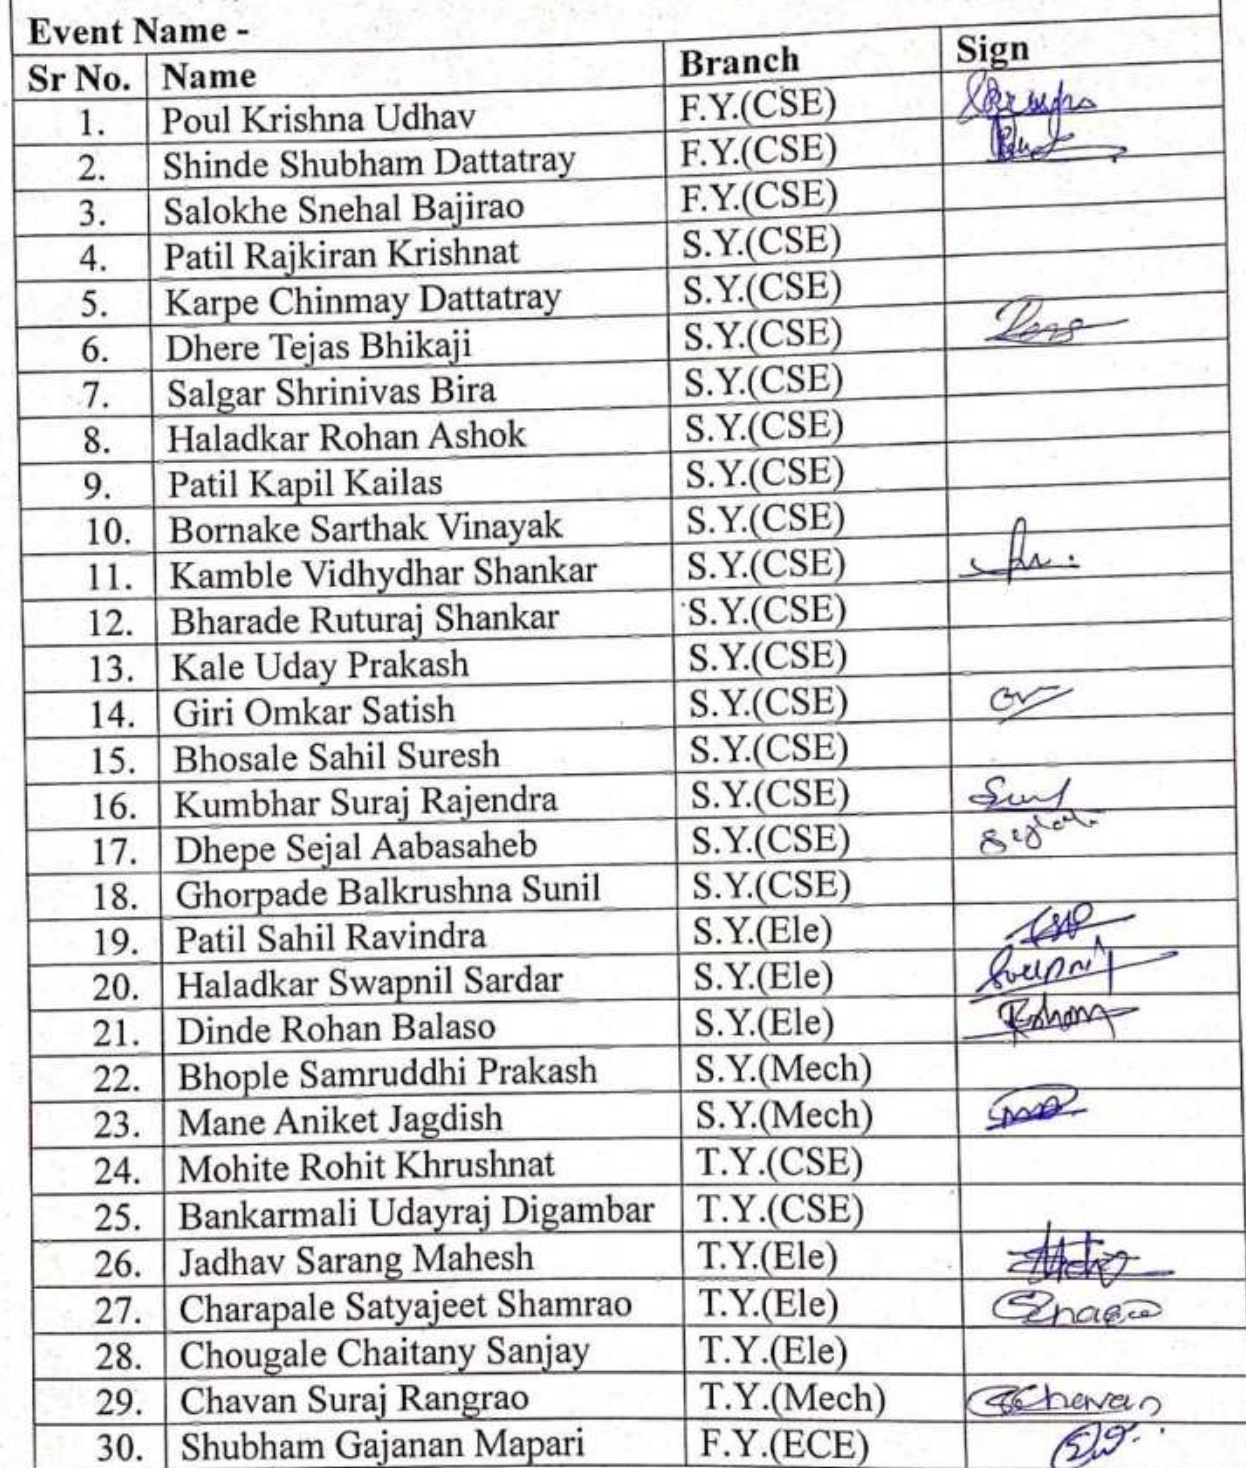 Event Name -
Sr No. Name Branch Sign
1. Poul Krishna Udhav F.Y.(CSE)
2. Shinde Shubham Dattatray F.Y.(CSE)
3. Salokhe Snehal Bajirao F.Y.(CSE)
4. Patil Rajkiran Krishnat S.Y.(CSE)
5. Karpe Chinmay Dattatray S.Y.(CSE)
6. Dhere Tejas Bhikaji S.Y.(CSE)
7. Salgar Shrinivas Bira S.Y.(CSE)
8. Haladkar Rohan Ashok S.Y.(CSE)
9. Patil Kapil Kailas S.Y.(CSE)
10. Bornake Sarthak Vinayak S.Y.(CSE)
11. Kamble Vidhydhar Shankar S.Y.(CSE)
12. Bharade Ruturaj Shankar S.Y.(CSE)
13. Kale Uday Prakash S.Y.(CSE)
14. Giri Omkar Satish S.Y.(CSE)
15. Bhosale Sahil Suresh S.Y.(CSE)
16. Kumbhar Suraj Rajendra S.Y.(CSE)
17. Dhepe Sejal Aabasaheb S.Y.(CSE)
18. Ghorpade Balkrushna Sunil S.Y.(CSE)
19. Patil Sahil Ravindra S.Y.(Ele)
20. Haladkar Swapnil Sardar S.Y.(Ele)
21. Dinde Rohan Balaso S.Y.(Ele) Rohan
22. Bhople Samruddhi Prakash S.Y.(Mech)
23. Mane Aniket Jagdish S.Y.(Mech)
24. Mohite Rohit Khrushnat T.Y.(CSE)
25. Bankarmali Udayraj Digambar T.Y.(CSE)
26. Jadhav Sarang Mahesh T.Y.(Ele)
27. Charapale Satyajeet Shamrao T.Y.(Ele)
28. Chougale Chaitany Sanjay T.Y.(Ele)
29. Chavan Suraj Rangrao T.Y.(Mech) SChavan
30. Shubham Gajanan Mapari F.Y.(ECE)